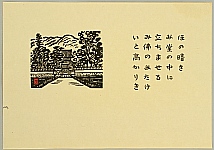 任の暗き
み堂の中に
立ちませる
み佛のみたけ
いと高かりき